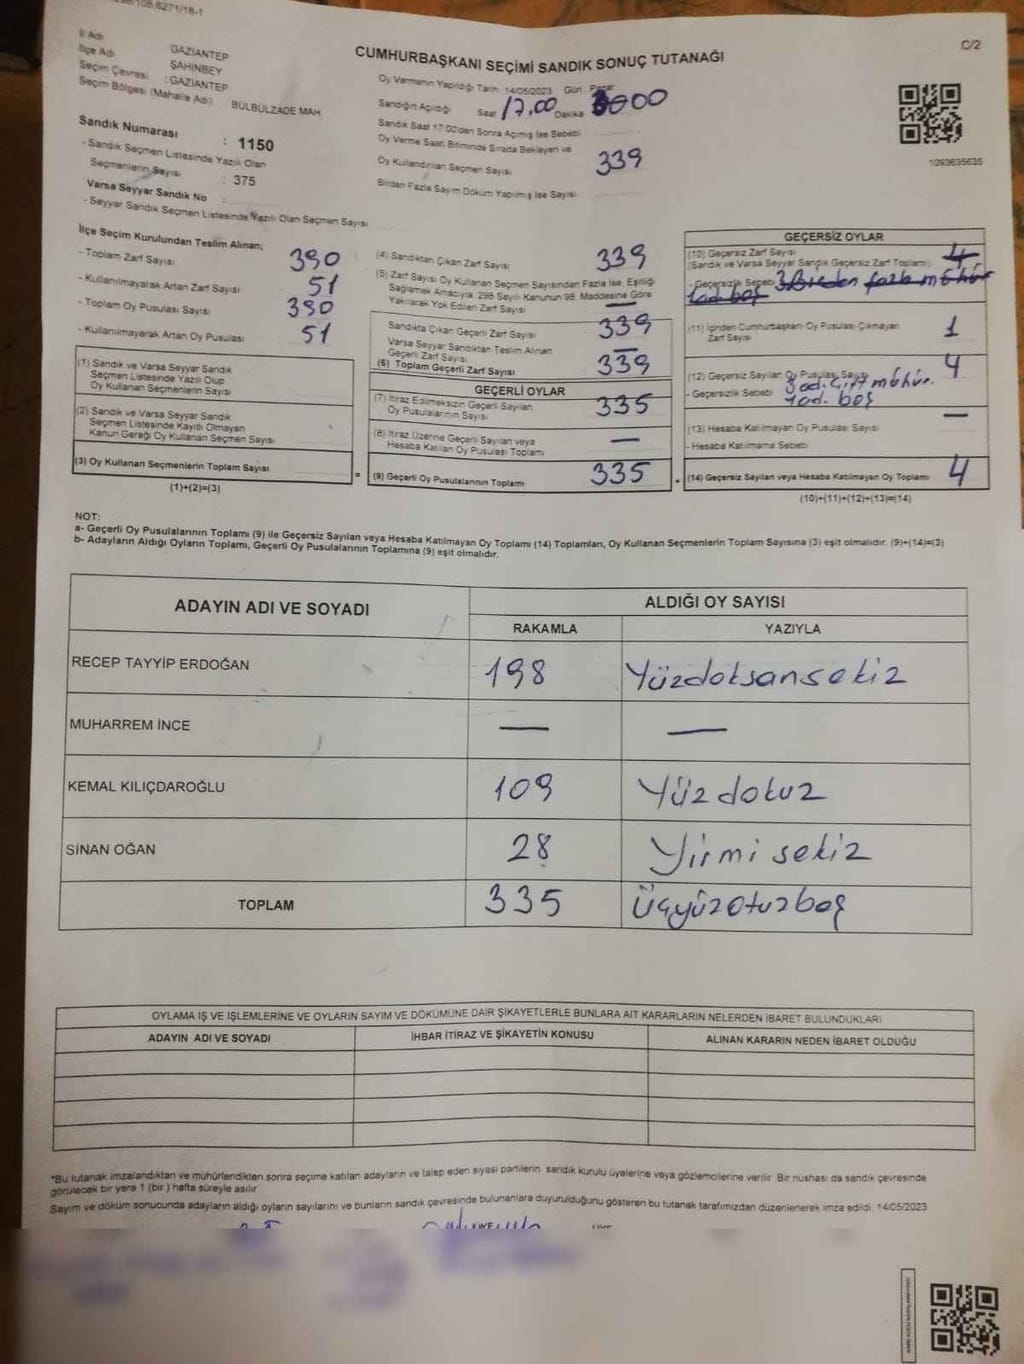 CUMHURBAŞKANI SEÇİMİ SANDIK SONUÇ TUTANAĞI
C/2
İl Adı
İlçe Adı
Seçim Çevresi
Seçim Bölgesi (Mahalle Adı)
GAZİANTEP
ŞAHİNBEY
: GAZİANTEP
BÜLBÜLZADE MAH.
Sandık Numarası : 1150
- Sandık Seçmen Listesinde Yazılı Olan
Seçmenlerin Sayısı : 375
Varsa Seyyar Sandık No :
- Seyyar Sandık Seçmen Listesinde Yazılı Olan Seçmen Sayısı
Oy Vermenin Yapıldığı Tarih 14/05/2023 Gün : Pazar
Sandığın Açıldığı Saat 17.00 Dakika 00
Sandık Saat 17:00'den Sonra Açılmış İse Sebebi :
Oy Verme Saati Bitiminde Sırada Bekleyen ve
Oy Kullandırılan Seçmen Sayısı 339
Birden Fazla Sayım Döküm Yapılmış İse Sayısı
1093635635
İlçe Seçim Kurulundan Teslim Alınan;
- Toplam Zarf Sayısı 390
- Kullanılmayarak Artan Zarf Sayısı 51
- Toplam Oy Pusulası Sayısı 390
- Kullanılmayarak Artan Oy Pusulası 51
(1) Sandık ve Varsa Seyyar Sandık
Seçmen Listesinde Yazılı Olup
Oy Kullanan Seçmenlerin Sayısı
(2) Sandık ve Varsa Seyyar Sandık
Seçmen Listesinde Kayıtlı Olmayan
Kanun Gereği Oy Kullanan Seçmen Sayısı
(3) Oy Kullanan Seçmenlerin Toplam Sayısı
(1)+(2)=(3)
(4) Sandıktan Çıkan Zarf Sayısı 339
(5) Zarf Sayısı Oy Kullanan Seçmen Sayısından Fazla İse, Eşitliği
Sağlamak Amacıyla, 298 Sayılı Kanunun 98. Maddesine Göre
Yakılarak Yok Edilen Zarf Sayısı —
Sandıkta Çıkan Geçerli Zarf Sayısı 339
Varsa Seyyar Sandıktan Teslim Alınan
Geçerli Zarf Sayısı —
(6) Toplam Geçerli Zarf Sayısı 339
GEÇERLİ OYLAR
(7) İtiraz Edilmeksizin Geçerli Sayılan
Oy Pusulalarının Sayısı 335
(8) İtiraz Üzerine Geçerli Sayılan veya
Hesaba Katılan Oy Pusulası Toplamı —
= (9) Geçerli Oy Pusulalarının Toplamı 335
GEÇERSİZ OYLAR
(10) Geçersiz Zarf Sayısı
(Sandık ve Varsa Seyyar Sandık Geçersiz Zarf Toplamı) 4
- Geçersizlik Sebebi 3 Birden fazla mühür
1ad boş
(11) İçinden Cumhurbaşkanı Oy Pusulası Çıkmayan
Zarf Sayısı 1
(12) Geçersiz Sayılan Oy Pusulası Sayısı 4
- Geçersizlik Sebebi 3ad. Çift mühür.
1ad. boş
(13) Hesaba Katılmayan Oy Pusulası Sayısı —
- Hesaba Katılmama Sebebi
(14) Geçersiz Sayılan veya Hesaba Katılmayan Oy Toplamı 4
(10)+(11)+(12)+(13)=(14)
NOT:
a- Geçerli Oy Pusulalarının Toplamı (9) ile Geçersiz Sayılan veya Hesaba Katılmayan Oy Toplamı (14) Toplamları, Oy Kullanan Seçmenlerin Toplam Sayısına (3) eşit olmalıdır. (9)+(14)=(3)
b- Adayların Aldığı Oyların Toplamı, Geçerli Oy Pusulalarının Toplamına (9) eşit olmalıdır.
ADAYIN ADI VE SOYADI ALDIĞI OY SAYISI
RAKAMLA YAZIYLA
RECEP TAYYİP ERDOĞAN 198 Yüzdoksansekiz
MUHARREM İNCE — —
KEMAL KILIÇDAROĞLU 109 Yüzdokuz
SİNAN OĞAN 28 Yirmi sekiz
TOPLAM 335 Üçyüzotuzbeş
OYLAMA İŞ VE İŞLEMLERİNE VE OYLARIN SAYIM VE DÖKÜMÜNE DAİR ŞİKAYETLERLE BUNLARA AİT KARARLARIN NELERDEN İBARET BULUNDUKLARI
ADAYIN ADI VE SOYADI İHBAR İTİRAZ VE ŞİKAYETİN KONUSU ALINAN KARARIN NEDEN İBARET OLDUĞU
*Bu tutanak imzalandıktan ve mühürlendikten sonra seçime katılan adayların ve talep eden siyasi partilerin sandık kurulu üyelerine veya gözlemcilerine verilir. Bir nushası da sandık çevresinde
görülecek bir yere 1 (bir) hafta süreyle asılır
Sayım ve döküm sonucunda adayların aldığı oyların sayılarını ve bunların sandık çevresinde bulunanlara duyurulduğunu gösteren bu tutanak tarafımızdan düzenlenerek imza edildi. 14/05/2023